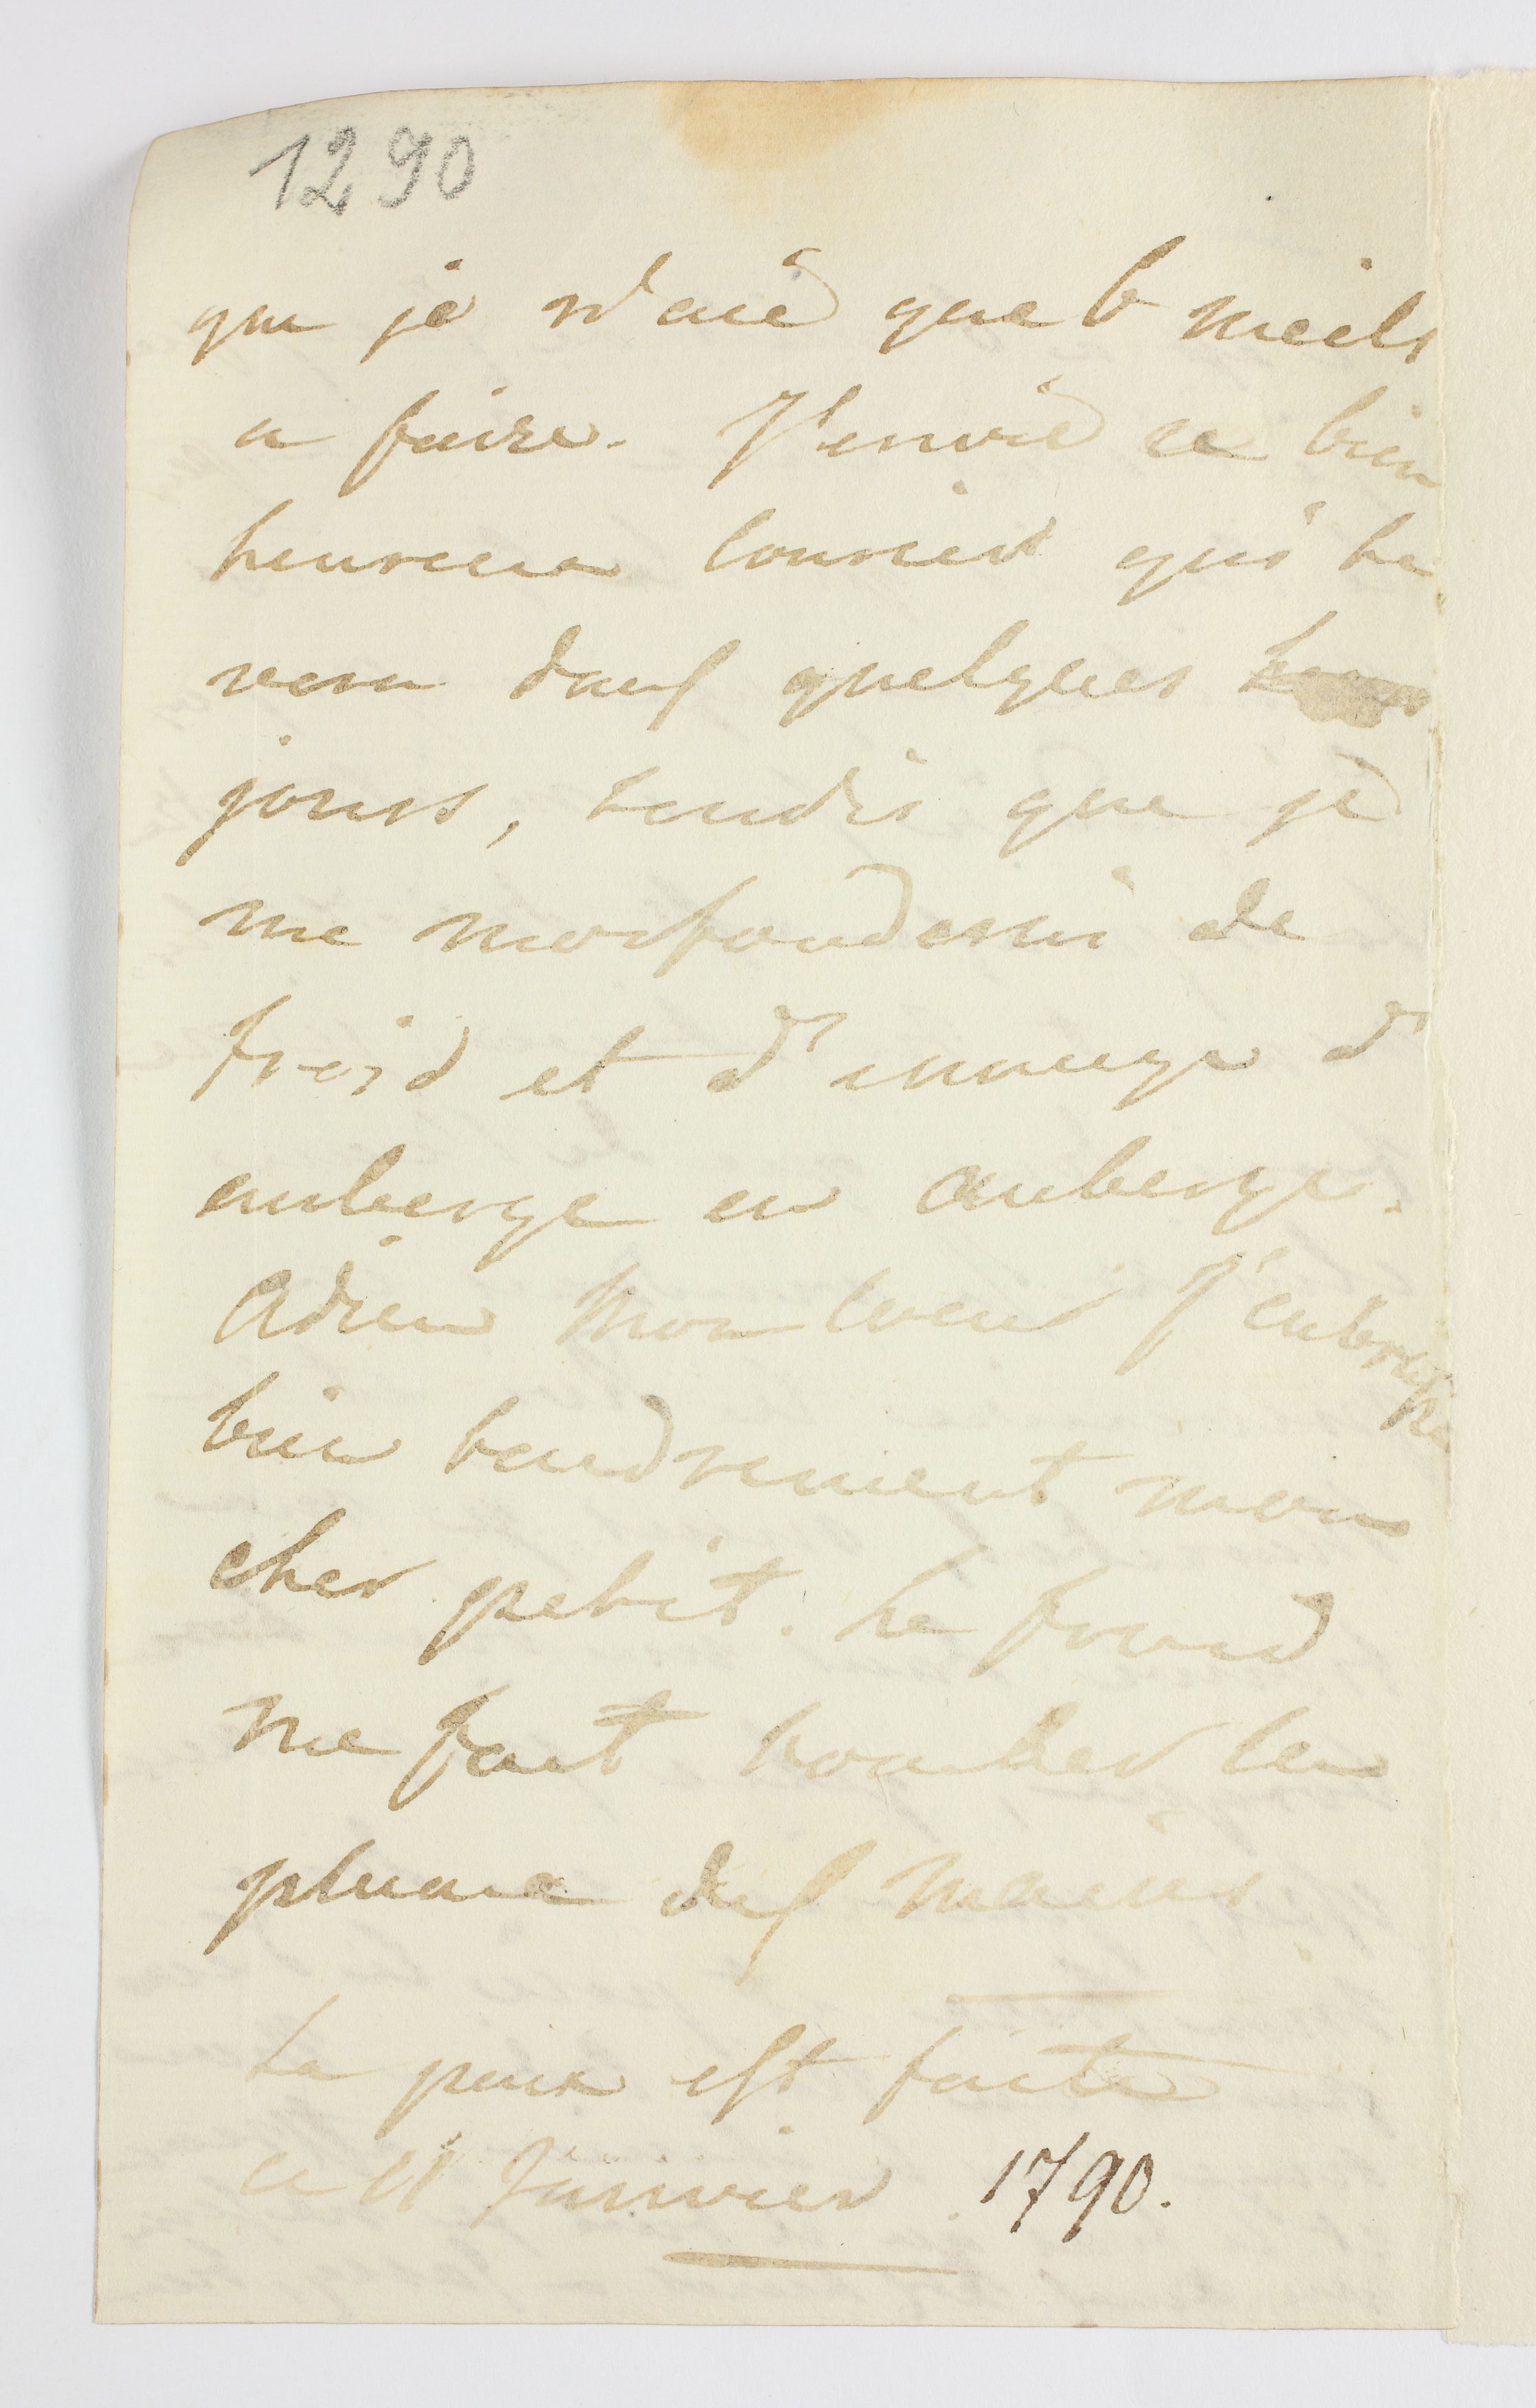 1290
que je n'aie que 6 miels
a faire. J'envie ce bien
heureux Courier qui te
vera dans quelques
jours, tendis que je
me morfonderai de
froid et d'
auberge en auberge.
Adieu Mon Coeur J'enbrasse
bien tendrement mon
cher petit. Le froid
me fait tomber la
plume des mains.
La paix est faite
ce 11 Janvier 1790.